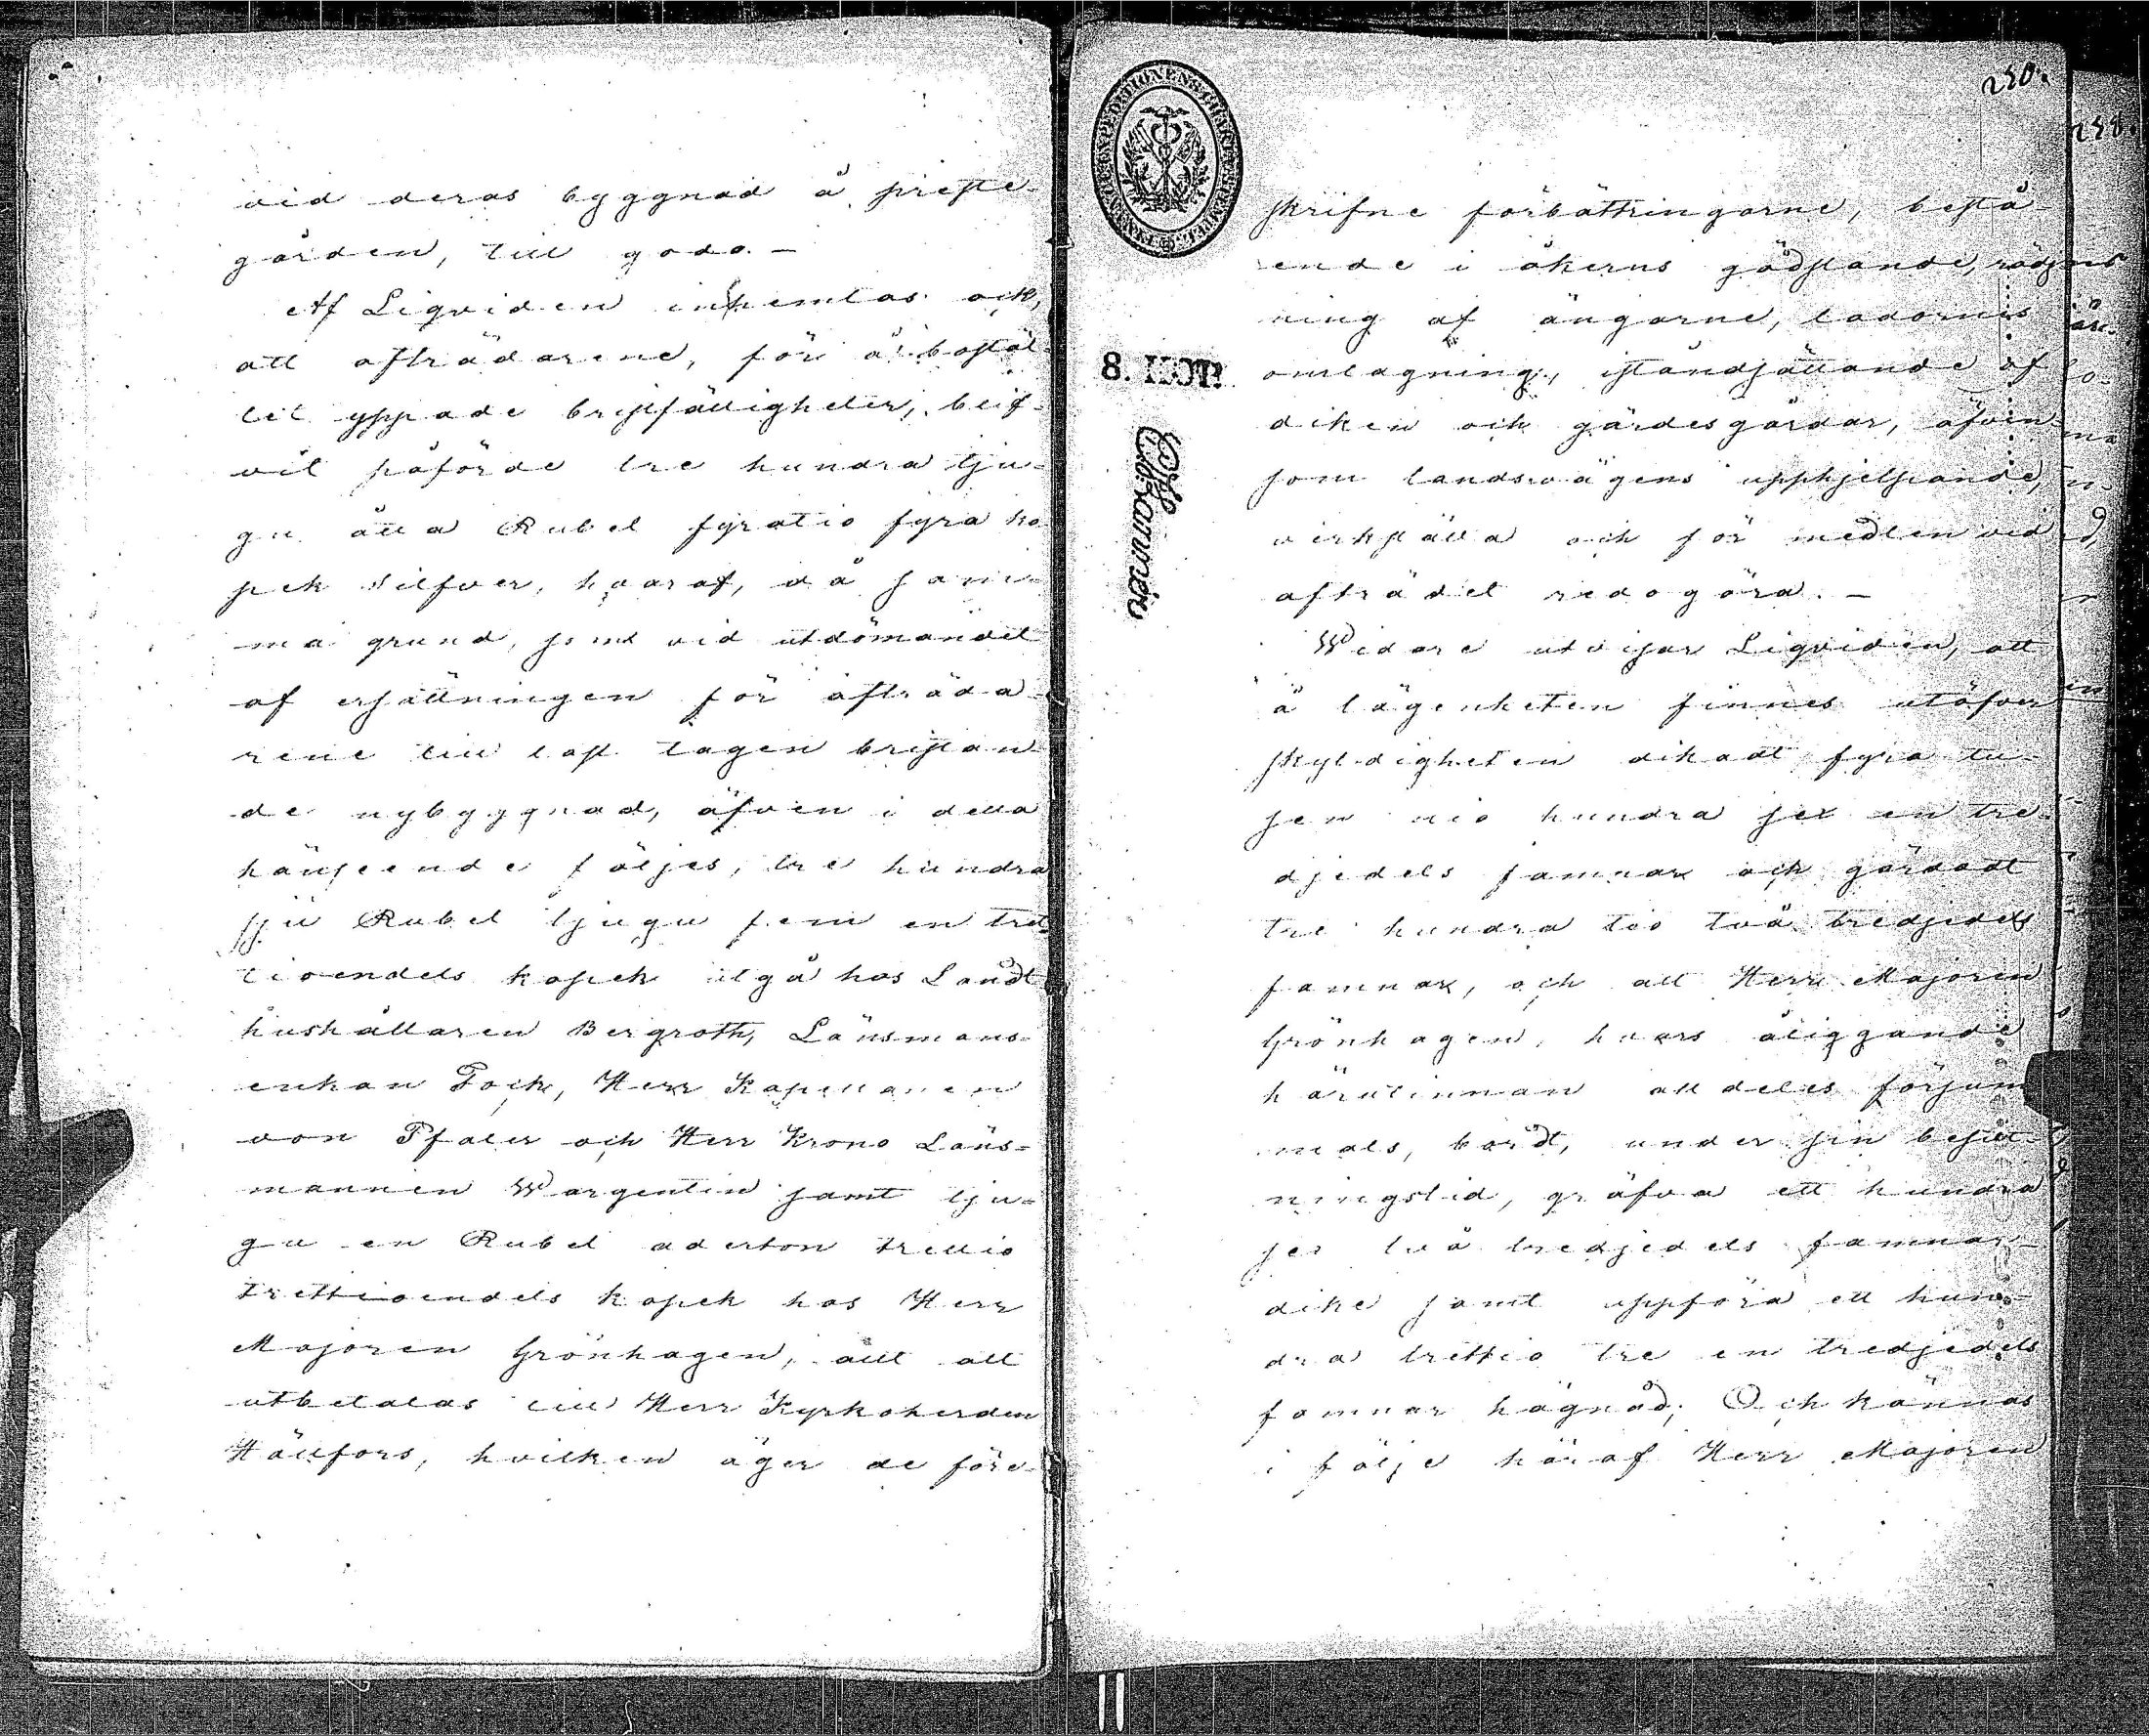 vid deras byggnad å preste-
gården, till godo. —
Af Liqviden inhemtas ock,
att afträdarene, för å bostäl-
let yppade bristfälligheter, blif-
vit påförde tre hundra tju-
gu åtta Rubel fyratio fyra ko-
pek silfver, hvaraf, då sam-
ma grund, som vid utdömandet
af ersättningen för afträda-
rene till last tagen bristan-
de nybyggnad, äfven i detta
hänseende följes, tre hundra
sju Rubel tjugu fem en tret-
tiondels kopek utgå hos Landt
hushållaren Bergroth, Länsmans-
enkan Fock, Herr Kapellanen
von Pfaler och Herr Krono Läns-
mannen Wargentin samt tju-
gu en Rubel aderton trettio
trettiondels kopek hos Herr
Majoren Grönhagen, allt att
utbetalas till Herr Kyrkoherden
Hällfors, hvilken äger de före-
250.
258.
8. KOP.
skrifne förbättringarne, bestå-
ende i åkerns gödslande, rödj-
ning af ängarne, ladornes
omlagning, iståndsättande af
diken och gärdesgårdar, äfven-
som landsvägens upphjelpande,
verkställa och för medlen vid
afträdet redogöra. —
Widare utvisar Liqviden, att
å lägenheten finnes utöfver
skyldigheten dikadt fyra tu-
sen nio hundra sex en tre-
djedels famnar och gärdadt
tre hundra tio två tredjedels
famnar, och att Herr Majoren
Grönhagen, hvars åliggande
härutinnan alldeles försum-
mats, bordt, under sin besitt-
ningstid, gräfva ett hundra
sex två tredjedels famnar
dike samt uppföra ett hun-
dra trettio tre en tredjedels
famnar hägnad; Och kännas
i följe häraf Herr Majoren